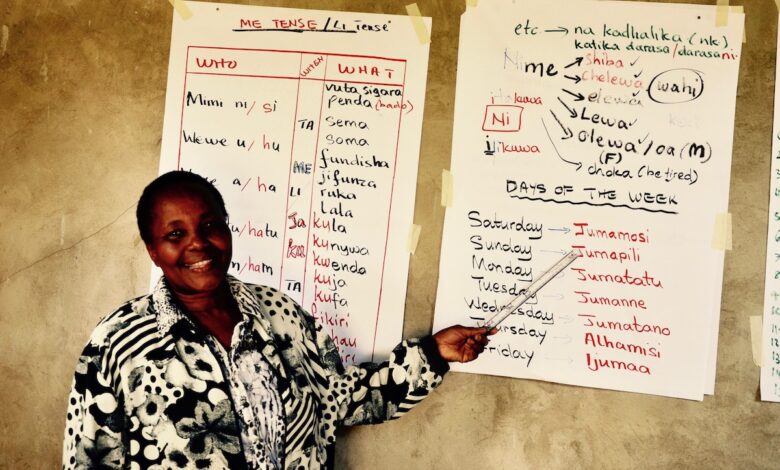 ME TENSE / LI Tense
WHO WHEN WHAT
vuta sigara
penda (mado)
Mimi ni/si
TA sema
soma
Wewe u/hu
fundisha
ME jifunza
a/ha
LI ruka
lala
u/hatu JA kula
KU kunywa
kwenda
ni/ham kuja
TA kufa
fikiri
etc → na kadhalika (nk)
katika darasa/darasani
Nime shiba ✓
chelewa ✓ (wahi)
elewa ✓
kuwa Lewa ✓
Ni olewa ✓/oa (M)
(F)
ilikuwa choka (be tired)
DAYS OF THE WEEK
Saturday → Jumamosi
Sunday → Jumapili
Monday → Jumatatu
Tuesday → Jumanne
Wednesday → Jumatano
Thursday → Alhamisi
Friday → Ijumaa